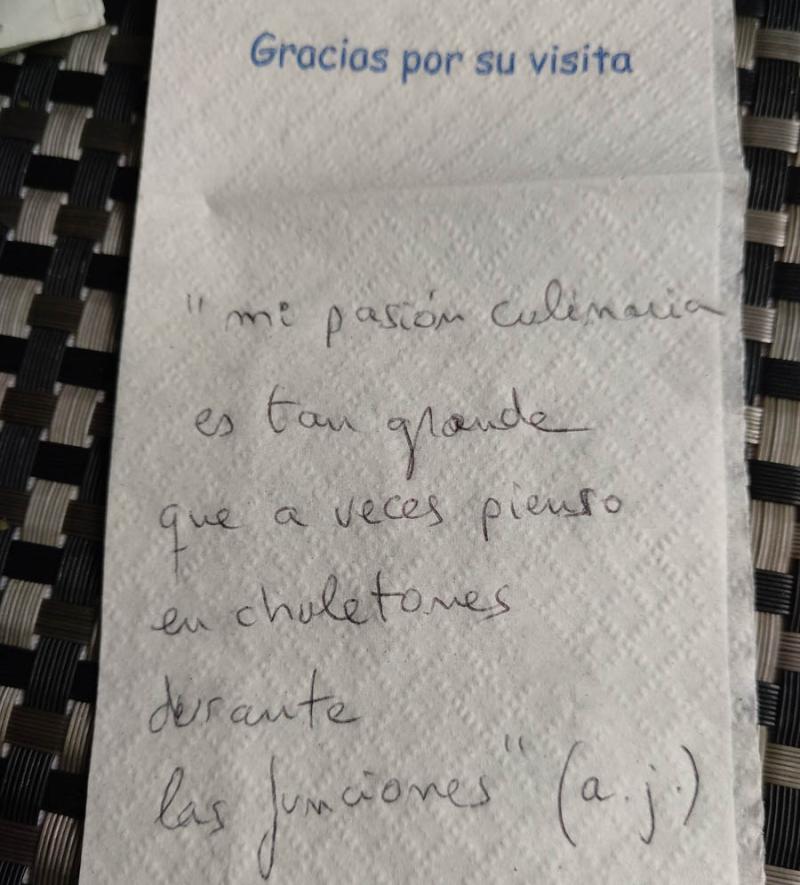 Gracias por su visita
"mi pasión culinaria
es tan grande
que a veces pienso
en chuletones
durante
las funciones" (a.j.)